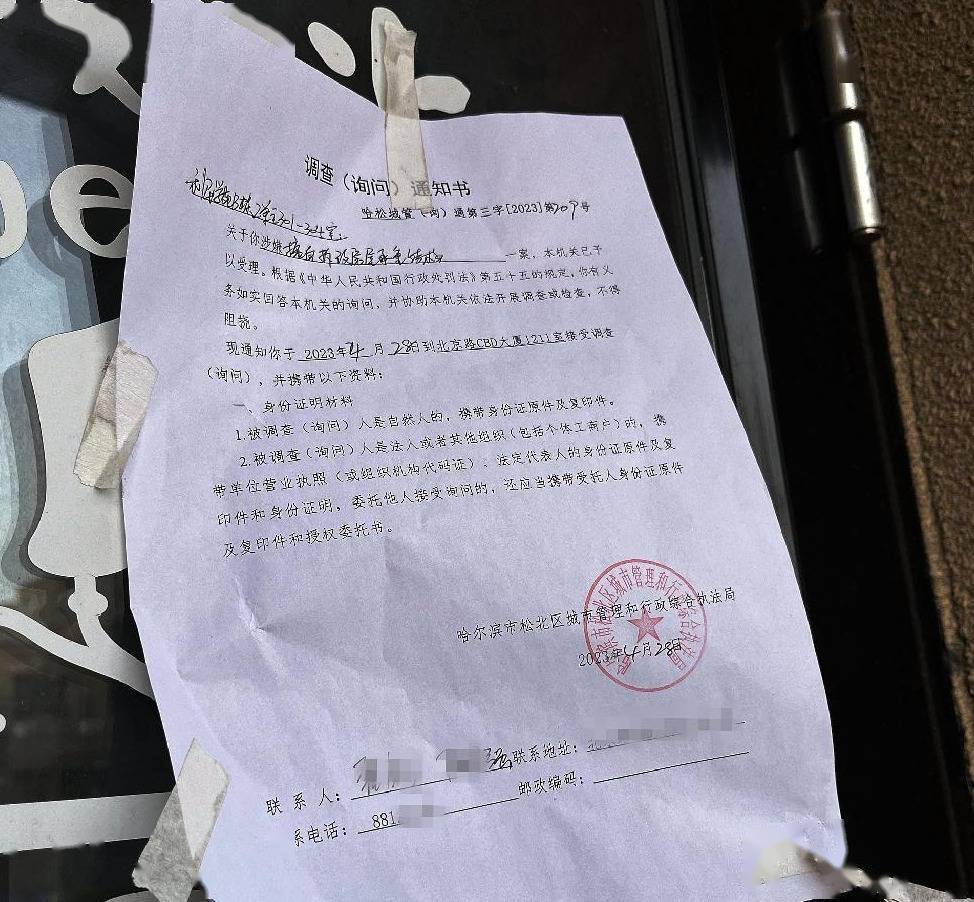 调查（询问）通知书
哈松城管（询）通第三字[2023]第209号
301-304室：
关于你涉嫌擅自拆改房屋承重结构一案，本机关已予
以受理。根据《中华人民共和国行政处罚法》第五十五的规定，你有义
务如实回答本机关的询问，并协助本机关依法开展调查或检查，不得
阻挠。
现通知你于 2023年4月28日到北京路CBD大厦1211室接受调查
（询问），并携带以下资料：
一、身份证明材料
1.被调查（询问）人是自然人的，携带身份证原件及复印件。
2.被调查（询问）人是法人或者其他组织（包括个体工商户）的，携
带单位营业执照（或组织机构代码证）、法定代表人的身份证原件及复
印件和身份证明，委托他人接受询问的，还应当携带受托人身份证原件
及复印件和授权委托书。
哈尔滨市松北区城市管理和行政综合执法局
2023年4月28日
联系人： 强 联系地址：
系电话：881 邮政编码：